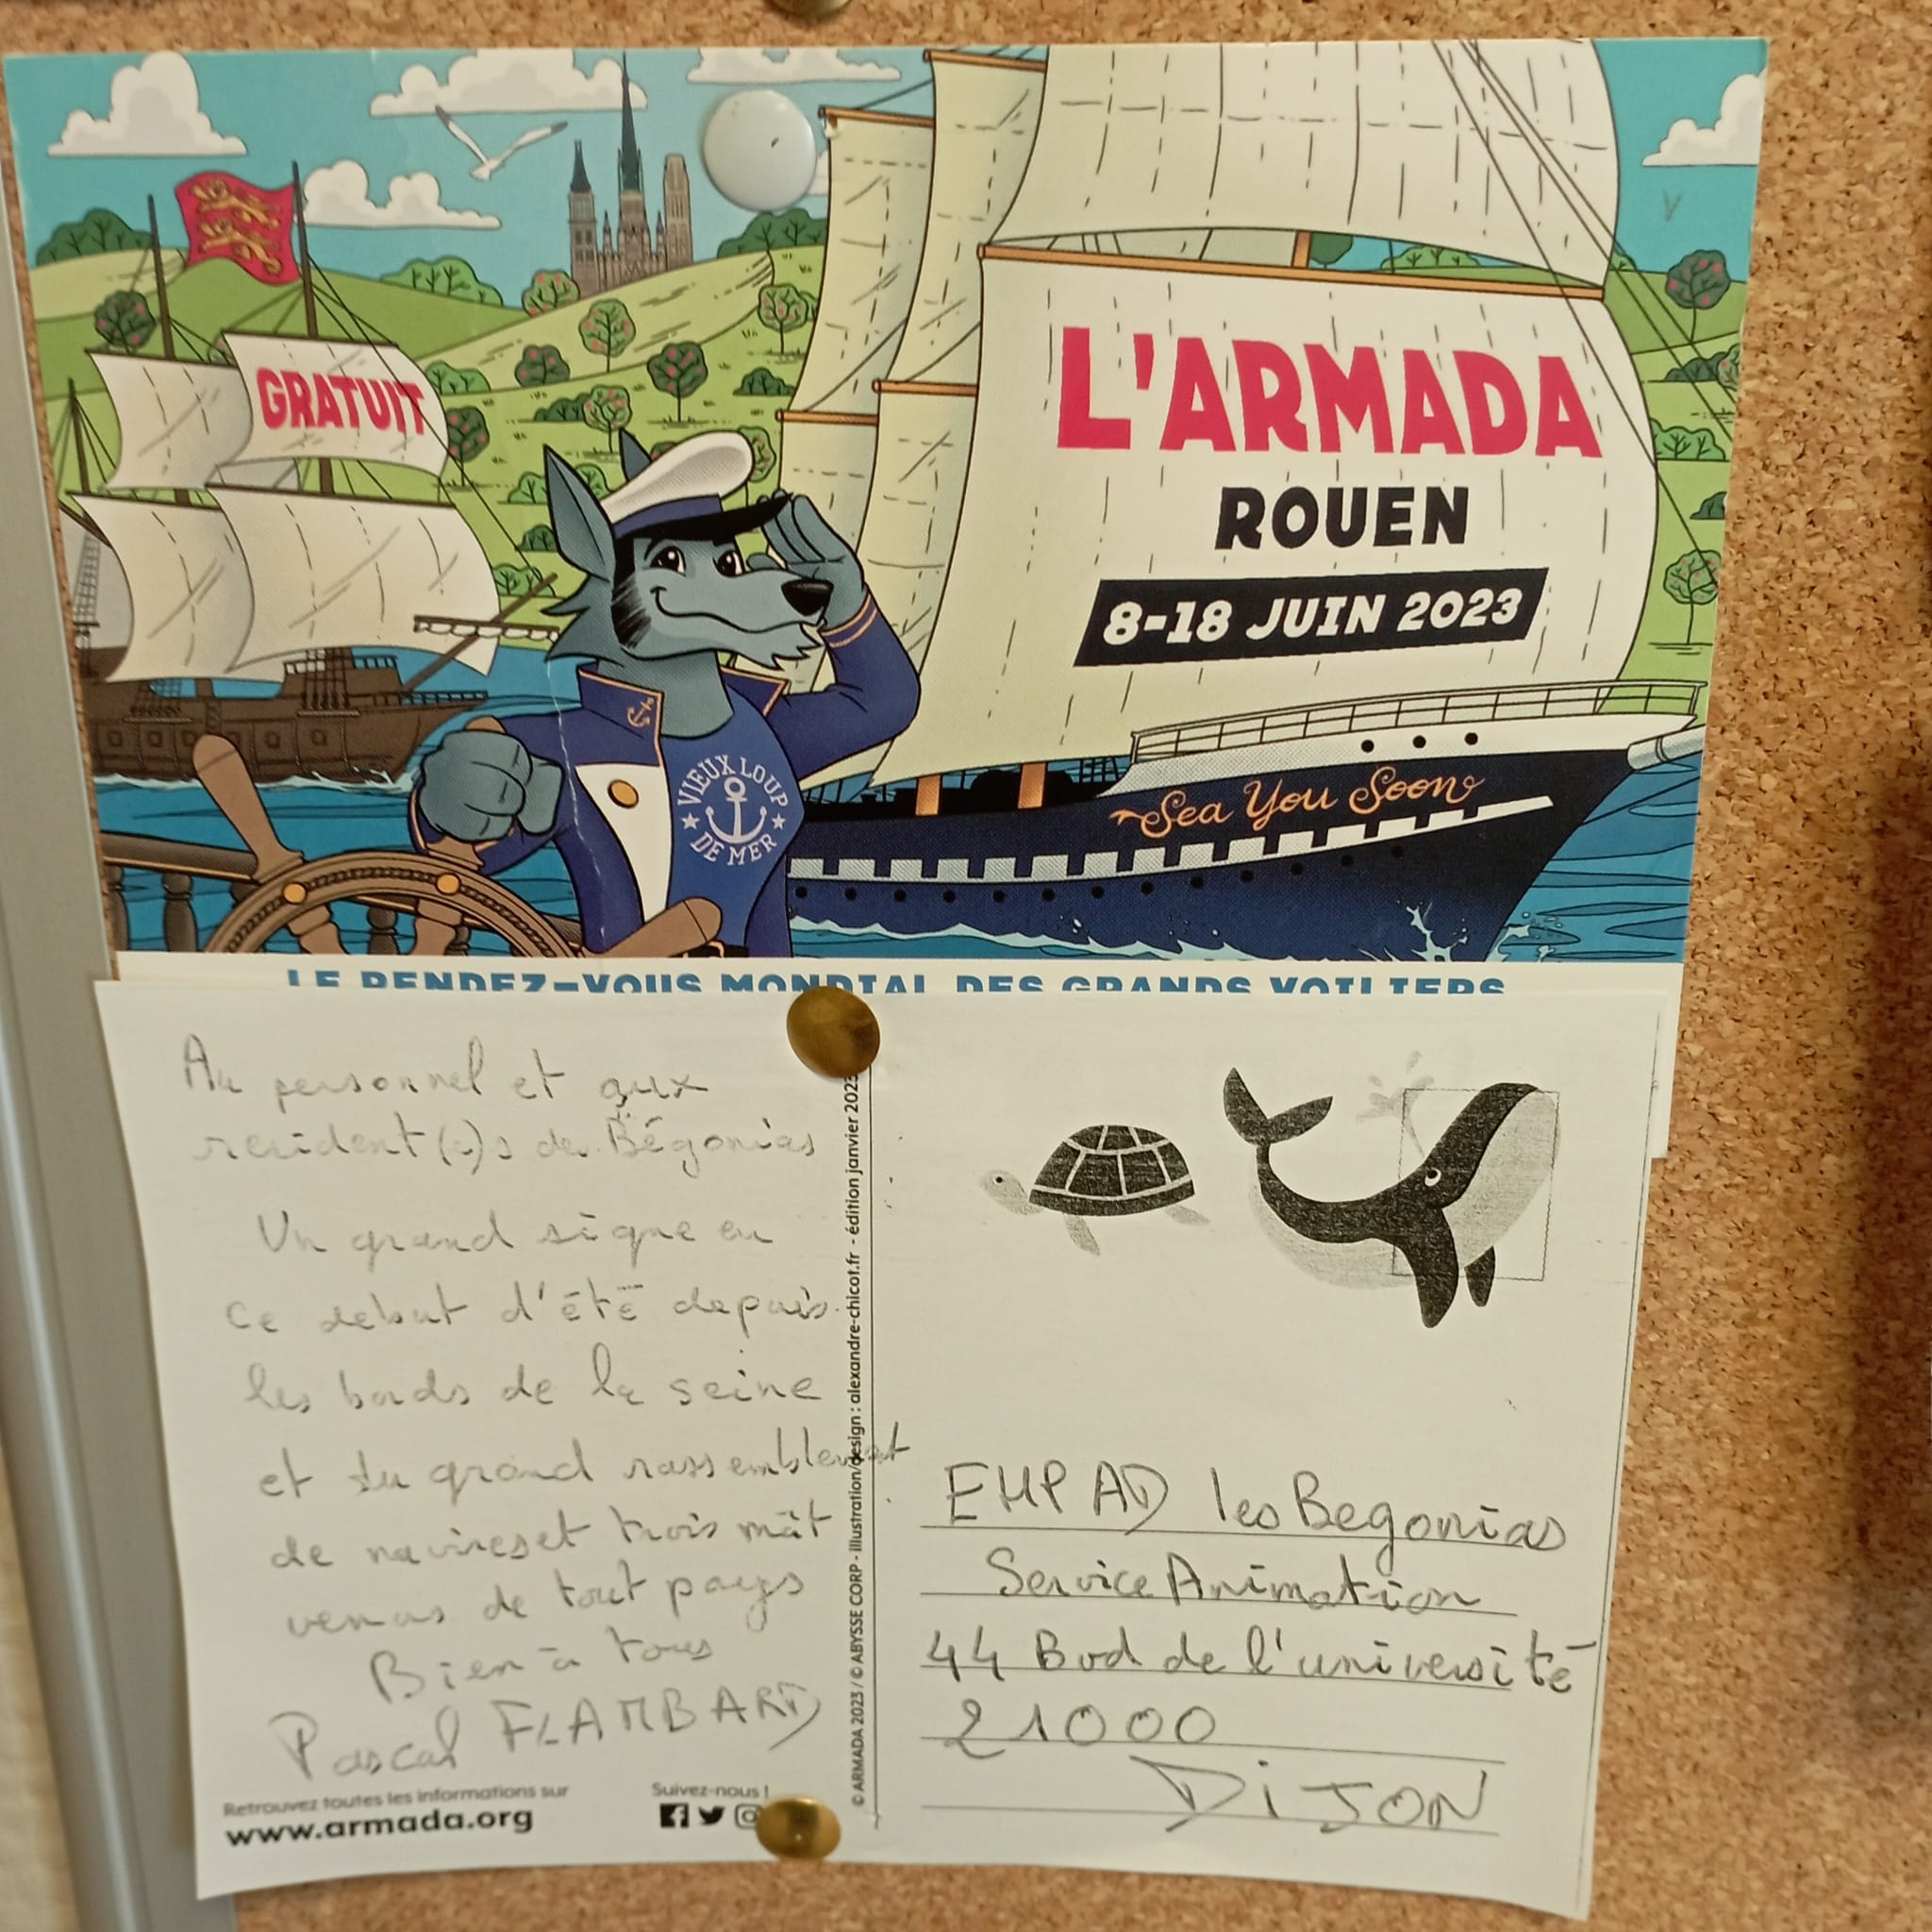 GRATUIT
L'ARMADA
ROUEN
8-18 JUIN 2023
VIEUX LOUP
DE MER
Sea You Soon
LE RENDEZ-VOUS MONDIAL DES GRANDS VOILIERS
Au personnel et aux
resident(e)s des Bégonias
Un grand signe en
ce debut d'été depuis
les bords de la seine
et du grand rassemblement
de navires et trois mât
venus de tout pays
Bien à tous
Pascal FLAMBARD
Retrouvez toutes les informations sur
www.armada.org
Suivez-nous !
© ARMADA 2023 / © ABYSSE CORP - illustration/design : alexandre-chicot.fr - édition janvier 2023
EHPAD les Begonias
Service Animation
44 Bvd de l'université
21000
DiJON